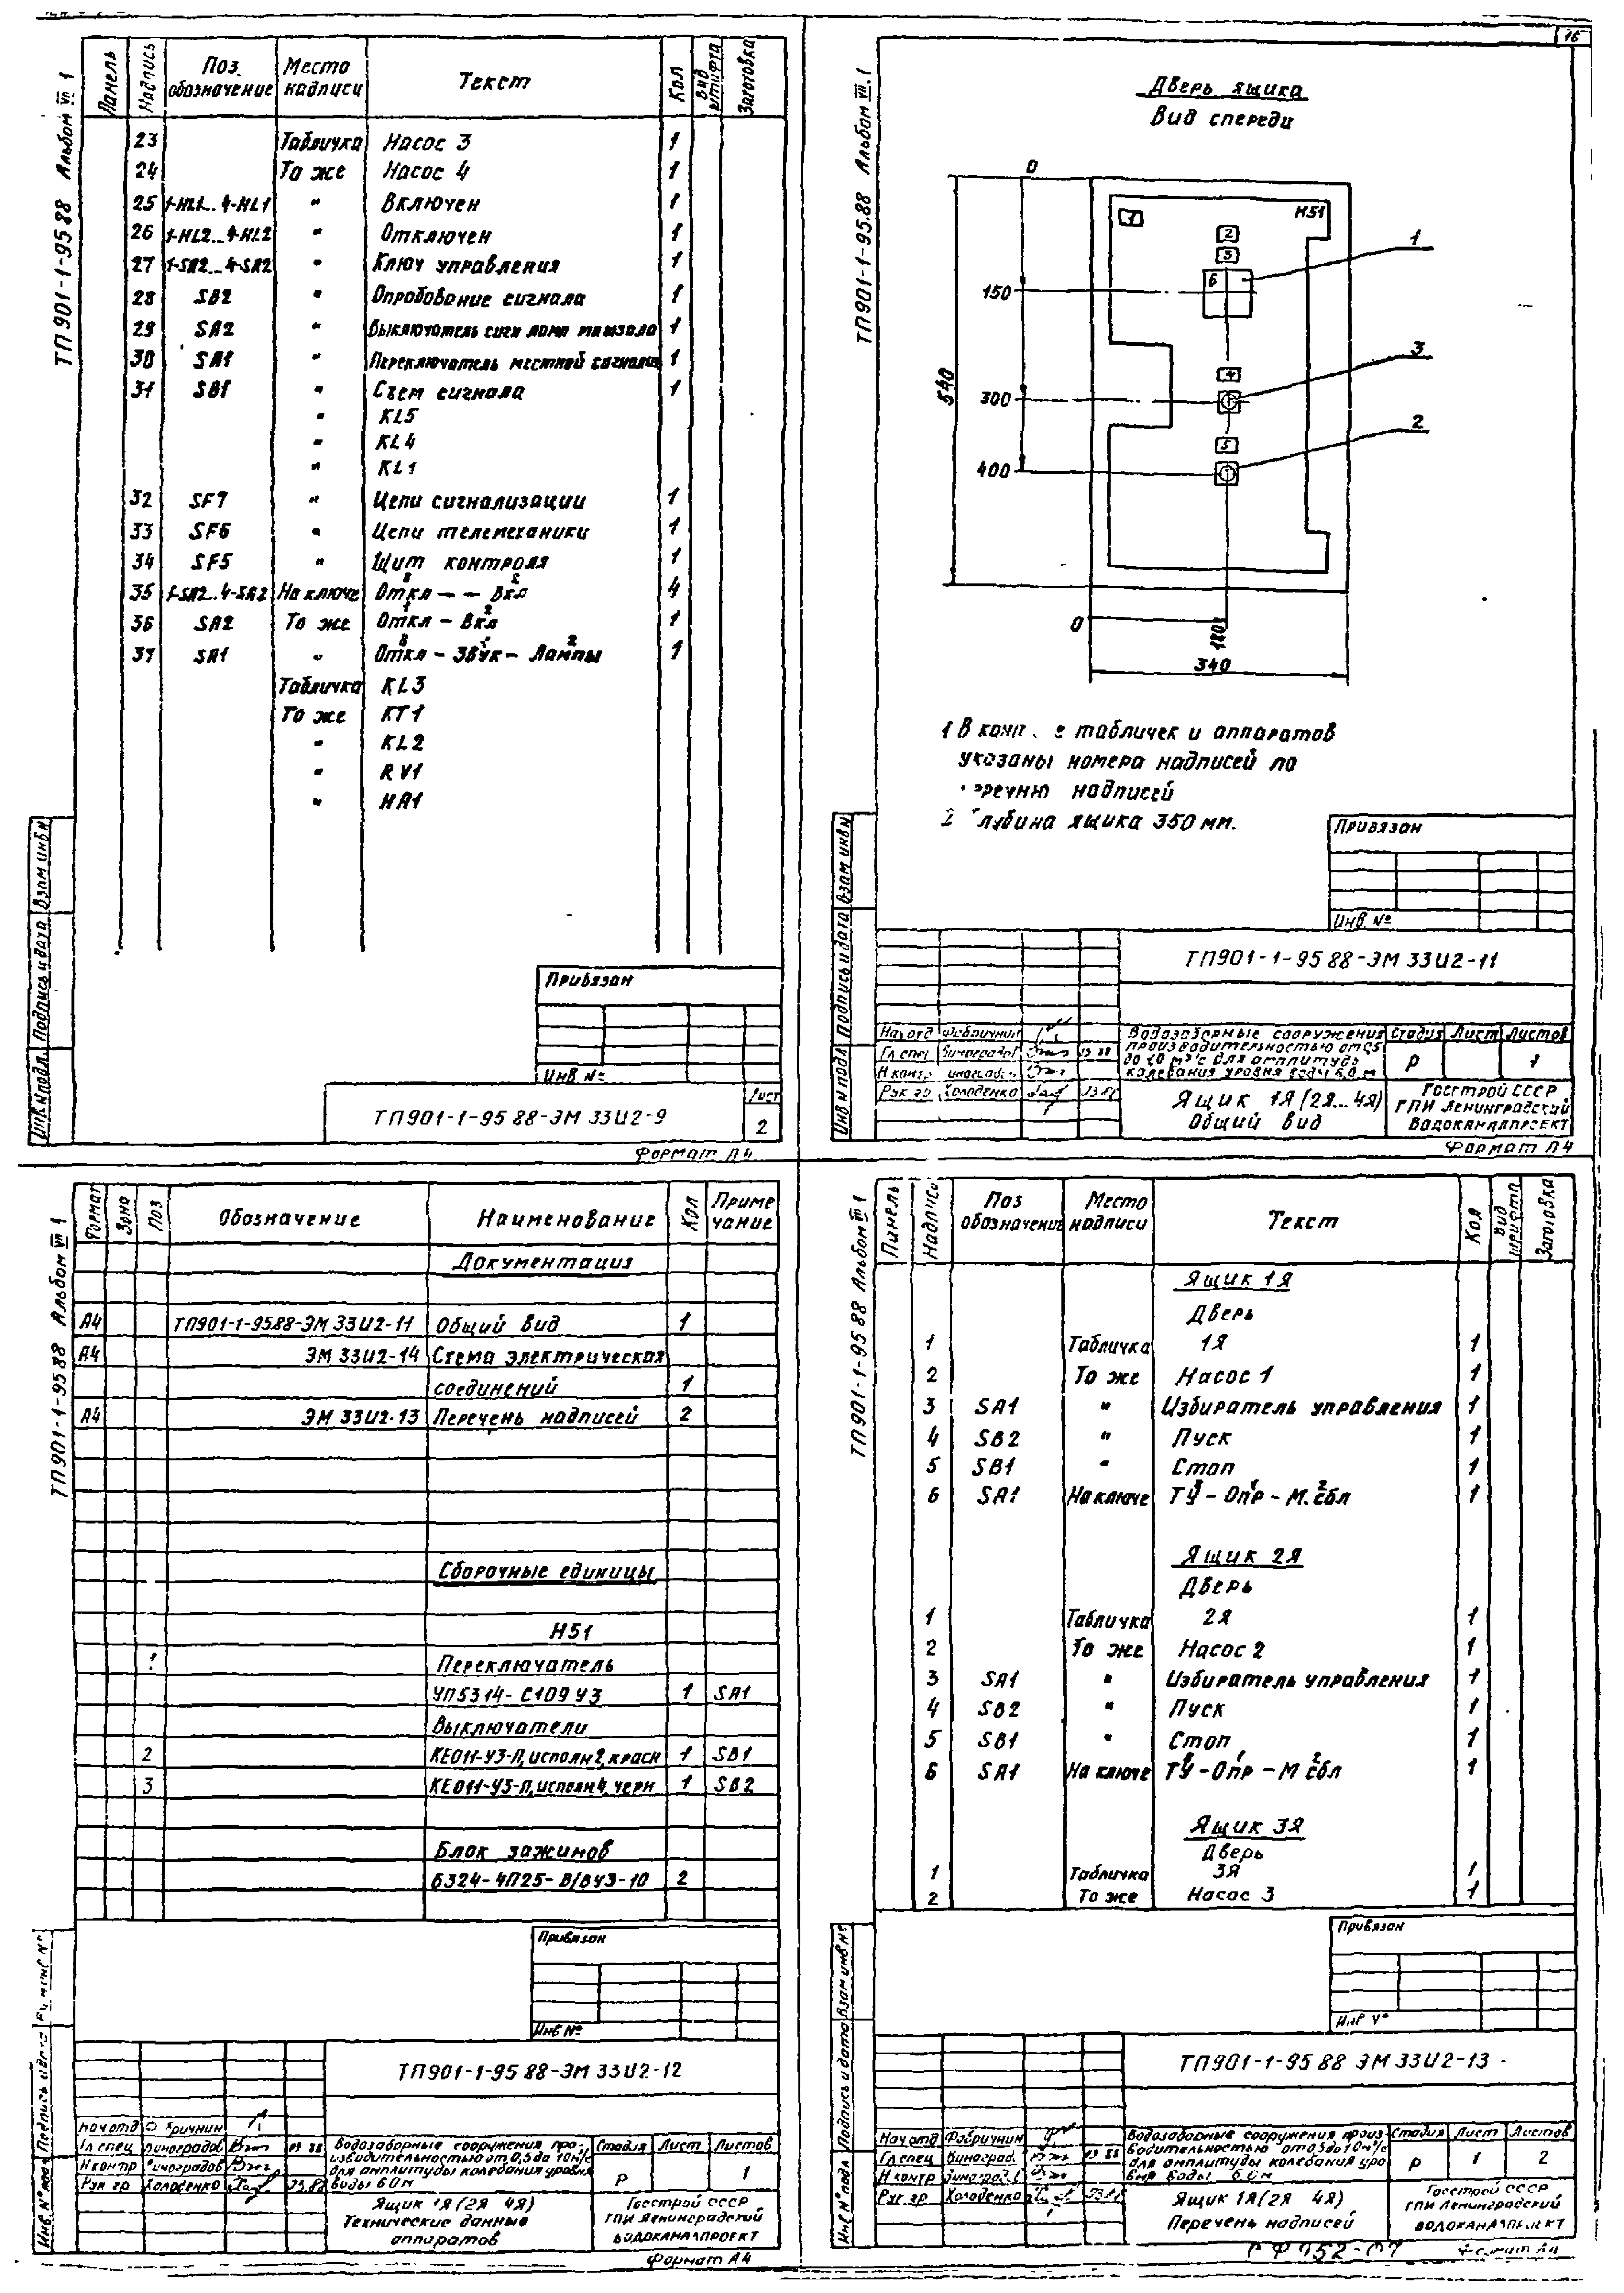 16
ТП901-1-95 88 Альбом VII.1
Панель Надпись Поз. обозначение Место надписи Текст Кол Вид шрифта Заготовка
23 Табличка Насос 3 1
24 То же Насос 4 1
25 1-HL1...4-HL1 " Включен 1
26 1-HL2...4-HL2 " Отключен 1
27 1-SA2...4-SA2 " Ключ управления 1
28 SB2 " Опробование сигнала 1
29 SA2 " Выключатель сигн ламп 1
30 SA1 " Переключатель местной 1
31 SB1 " Съем сигнала 1
" KL5
" KL4
" KL1
32 SF7 " Цепи сигнализации 1
33 SF6 " Цепи телемеханики 1
34 SF5 " Щит контроля 1
35 1-SA2..4-SA2 На ключе Откл - - Вкл 4
36 SA2 То же Откл - Вкл 1
37 SA1 " Откл - Звук - Лампы 1
Табличка KL3
То же KT1
" KL2
" RV1
" HA1
Привязан
Инв №
ТП901-1-95 88-ЭМ 33И2-9
Лист
2
Инв № подл. Подпись и дата Взам инв №
Формат А4
ТП901-1-95 88 Альбом VII.1
Дверь ящика
Вид спереди
0
1
H51
2
3
1
150
6
540
4
3
300
5
2
400
0
180
340
1 В табличек и аппаратов
указаны номера надписей по
надписей
2 ящика 350 мм.
Привязан
Инв. №
ТП901-1-95 88-ЭМ 33И2-11
Нач отд Фабричнин
Гл спец Виноградов 03 88
Н контр
Рук гр Холоденко
Водозаборные сооружения
производительностью от 0,5
до 10 м³/с для амплитуды
колебания уровня воды 6,0 м
Стадия Лист Листов
Р 1
Ящик 1Я (2Я...4Я)
Общий вид
Госстрой СССР
ГПИ Ленинградский
Водоканалпроект
Инв № подл Подпись и дата Взам инв №
Формат А4
ТП901-1-95 88 Альбом VII 1
Формат Зона Поз Обозначение Наименование Кол Примечание
Документация
А4 ТП901-1-95.88-ЭМ 33И2-11 Общий вид 1
А4 ЭМ 33И2-14 Схема электрическая
соединений 1
А4 ЭМ 33И2-13 Перечень надписей 2
Сборочные единицы
H51
1 Переключатель
УП5314-С109 У3 1 SA1
Выключатели
2 КЕ011-У3-П, исполн 2, красн 1 SB1
3 КЕ011-У3-П, исполн 4, черн 1 SB2
Блок зажимов
Б324-4П25-В/ВУ3-10 2
Привязан
Инв №
ТП901-1-95 88-ЭМ 33И2-12
Нач отд
Гл спец Виноградов 03 88
Н контр Виноградов
Рук гр Холоденко 03.88
Водозаборные сооружения про-
изводительностью от 0,5 до 10 м³/с
для амплитуды колебания уровня
воды 6 0 м
Стадия Лист Листов
Р 1
Ящик 1Я (2Я 4Я)
Технические данные
аппаратов
Госстрой СССР
ГПИ Ленинградский
Водоканалпроект
Формат А4
ТП901-1-95 88 Альбом VII 1
Панель Надпись Поз обозначение Место надписи Текст Кол Вид шрифта Заготовка
Ящик 1Я
Дверь
1 Табличка 1Я 1
2 То же Насос 1 1
3 SA1 " Избиратель управления 1
4 SB2 " Пуск 1
5 SB1 " Стоп 1
6 SA1 На ключе ТУ - Опр - М. сбл 1
Ящик 2Я
Дверь
1 Табличка 2Я 1
2 То же Насос 2 1
3 SA1 " Избиратель управления 1
4 SB2 " Пуск 1
5 SB1 " Стоп 1
6 SA1 На ключе ТУ - Опр - М сбл 1
Ящик 3Я
Дверь
1 Табличка 3Я 1
2 То же Насос 3 1
Привязан
Инв №
ТП901-1-95 88 ЭМ 33И2-13
Нач отд Фабричнин
Гл спец Виноград. 03 88
Н контр Виноград
Рук гр Холоденко 03.88
Водозаборные сооружения произ-
водительностью от 0,5 до 10 м³/с
для амплитуды колебания уро
вня воды 6 0 м
Стадия Лист Листов
Р 1 2
Ящик 1Я (2Я 4Я)
Перечень надписей
Госстрой СССР
ГПИ Ленинградский
Водоканалпроект
Формат А4